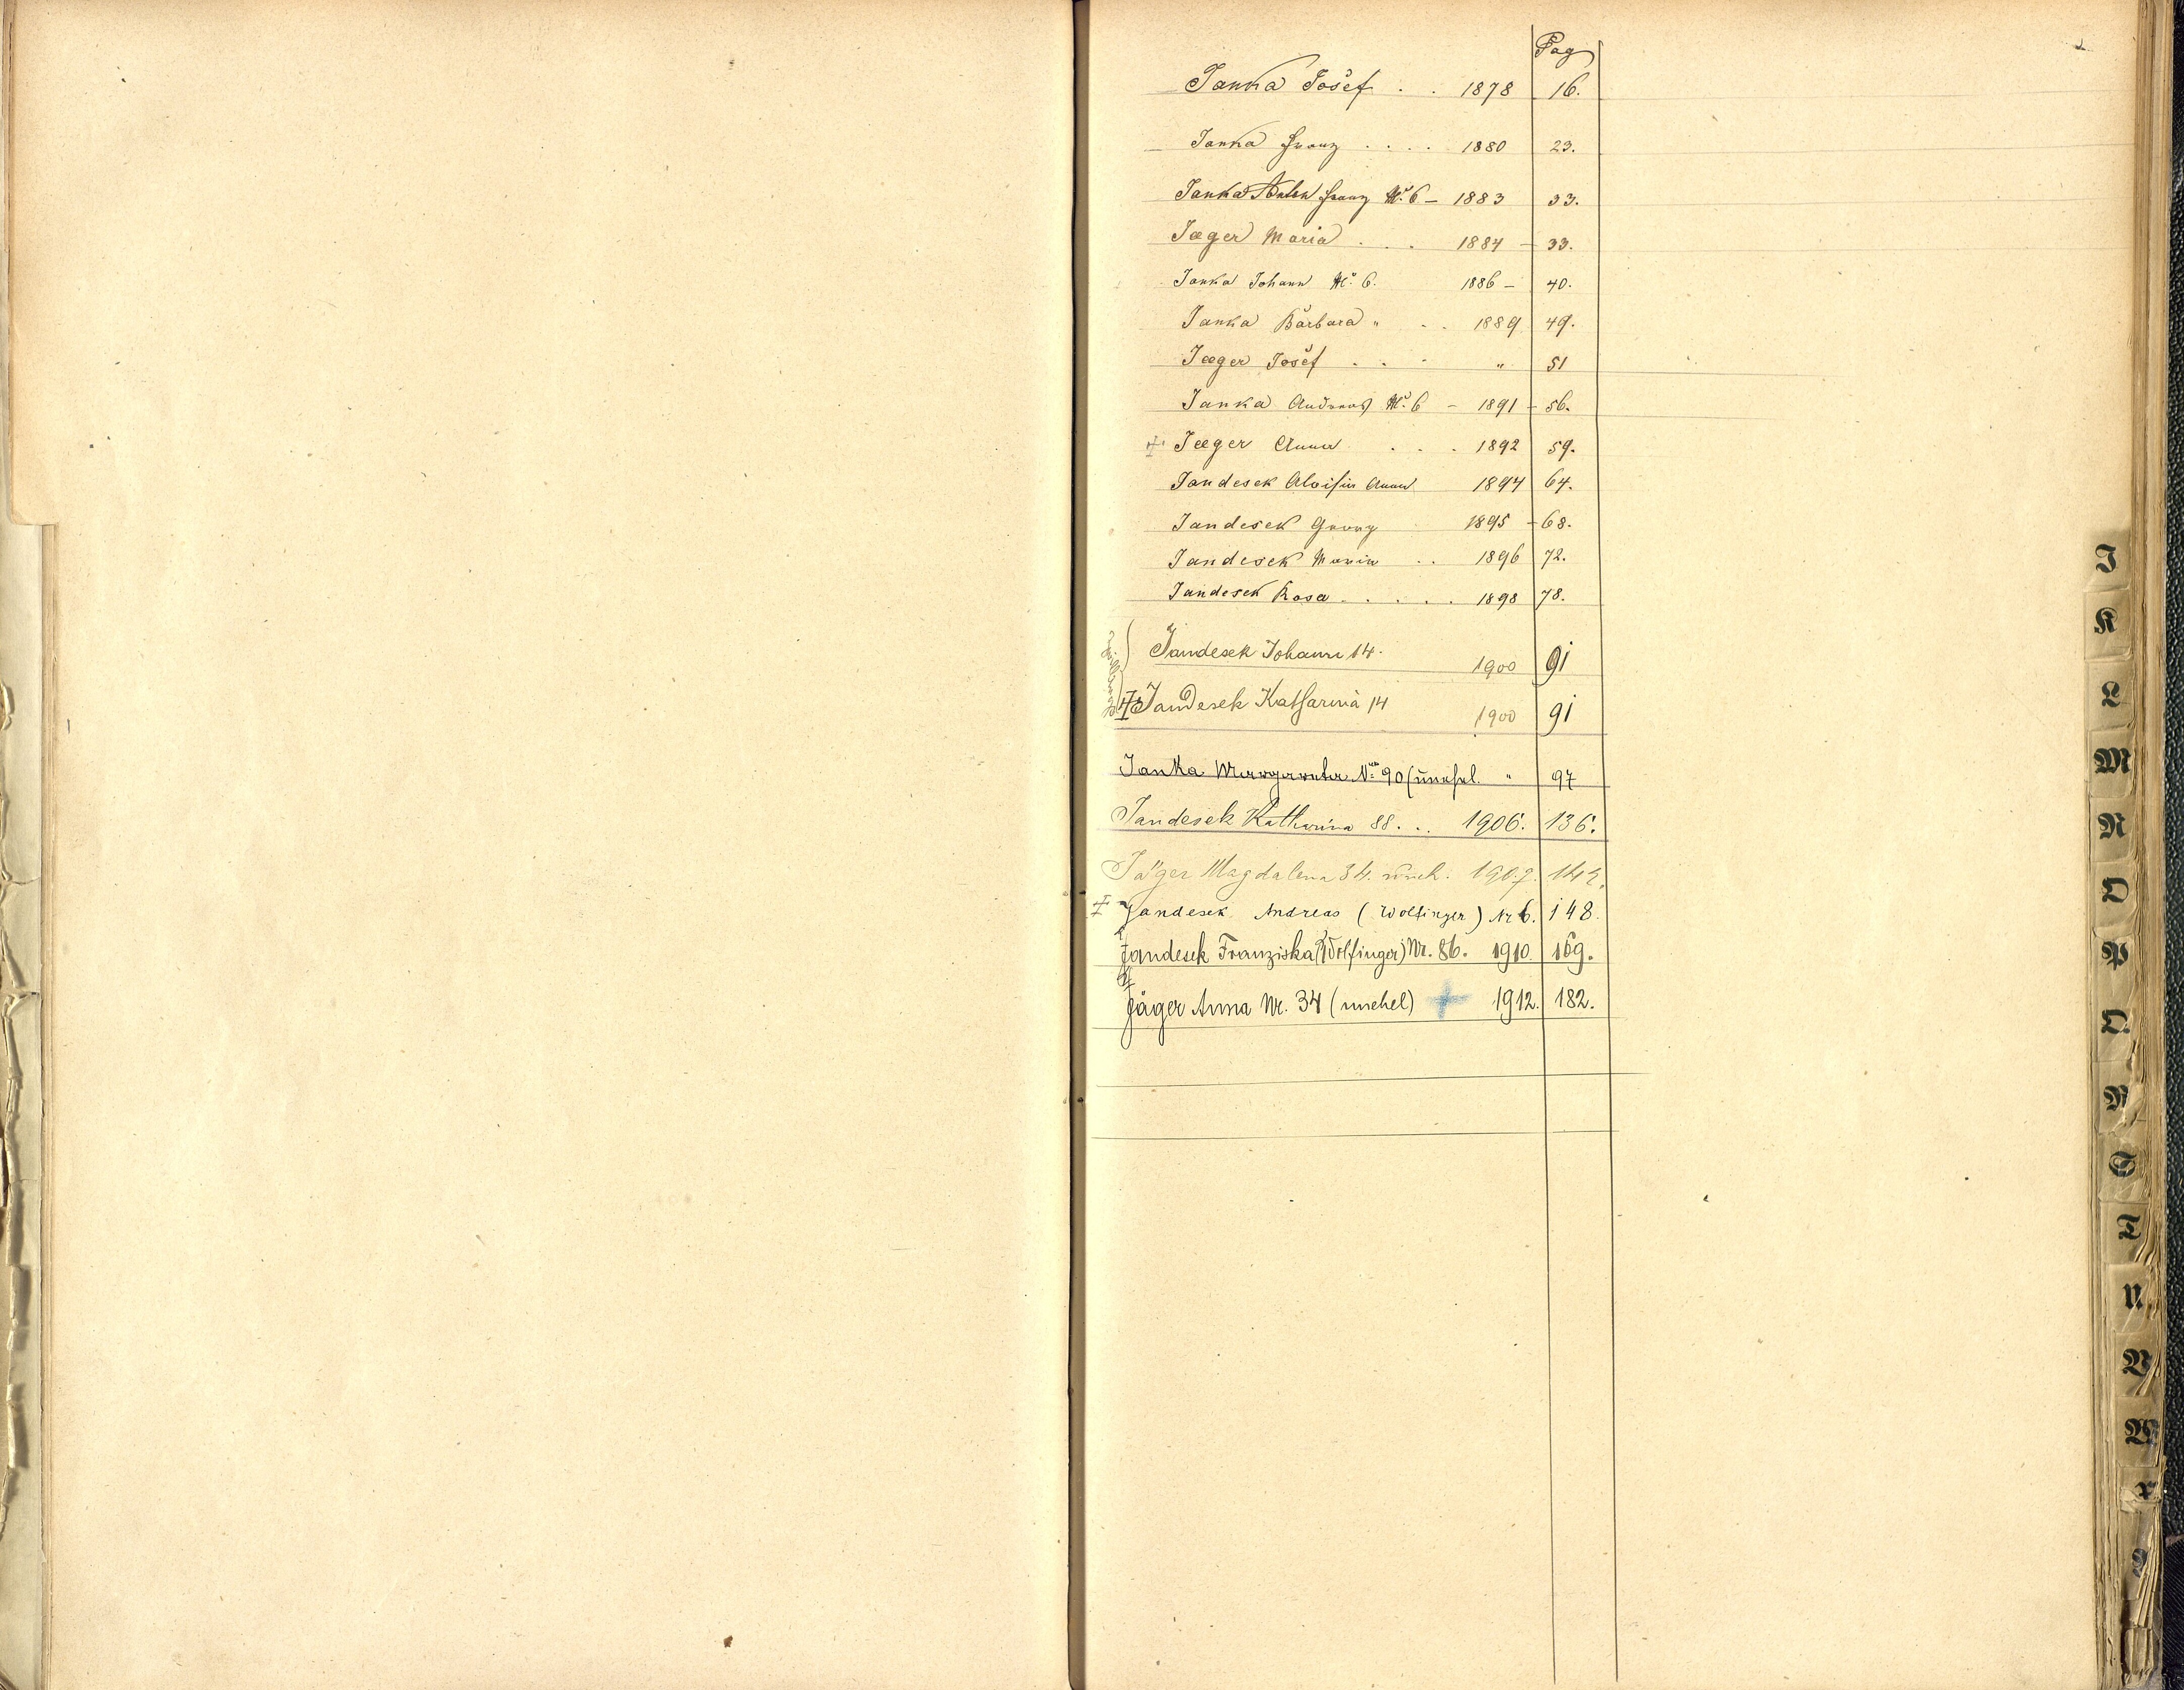 Pag
Janka Josef . . 1878 16.
Janka Franz . . . . 1880 23.
Janka Anton Franz No. 6 – 1883 33.
Jaeger Maria . . . 1884 – 33.
Janka Johann No. 6. 1886 – 40.
Janka Barbara " . . 1889 49.
Jaeger Josef . . . " 51
Janka Andreas No. 6 – 1891 – 56.
Jaeger Anna . . . 1892 59.
Jandesek Aloisia Anna 1894 64.
Jandesek Georg 1895 – 68.
Jandesek Maria . . 1896 72.
Jandesek Rosa . . . . . 1898 78.
Zwillinge
Jandesek Johann 14. 1900 91
Jandesek Katharina 14 1900 91
Janka Margareta No 90 (unehel. " 97
Jandesek Katharina 88 . . . 1906. 136.
Jäger Magdalena 34. uneh. 1907. 142.
Jandesek Andreas (Wolfinger) Nr 6. 148.
Jandesek Franziska (Wolfinger) Nr. 86. 1910. 169.
Jäger Anna Nr. 34 (unehel) + 1912. 182.
I
K
L
M
N
O
P
Q
R
S
T
U
V
W